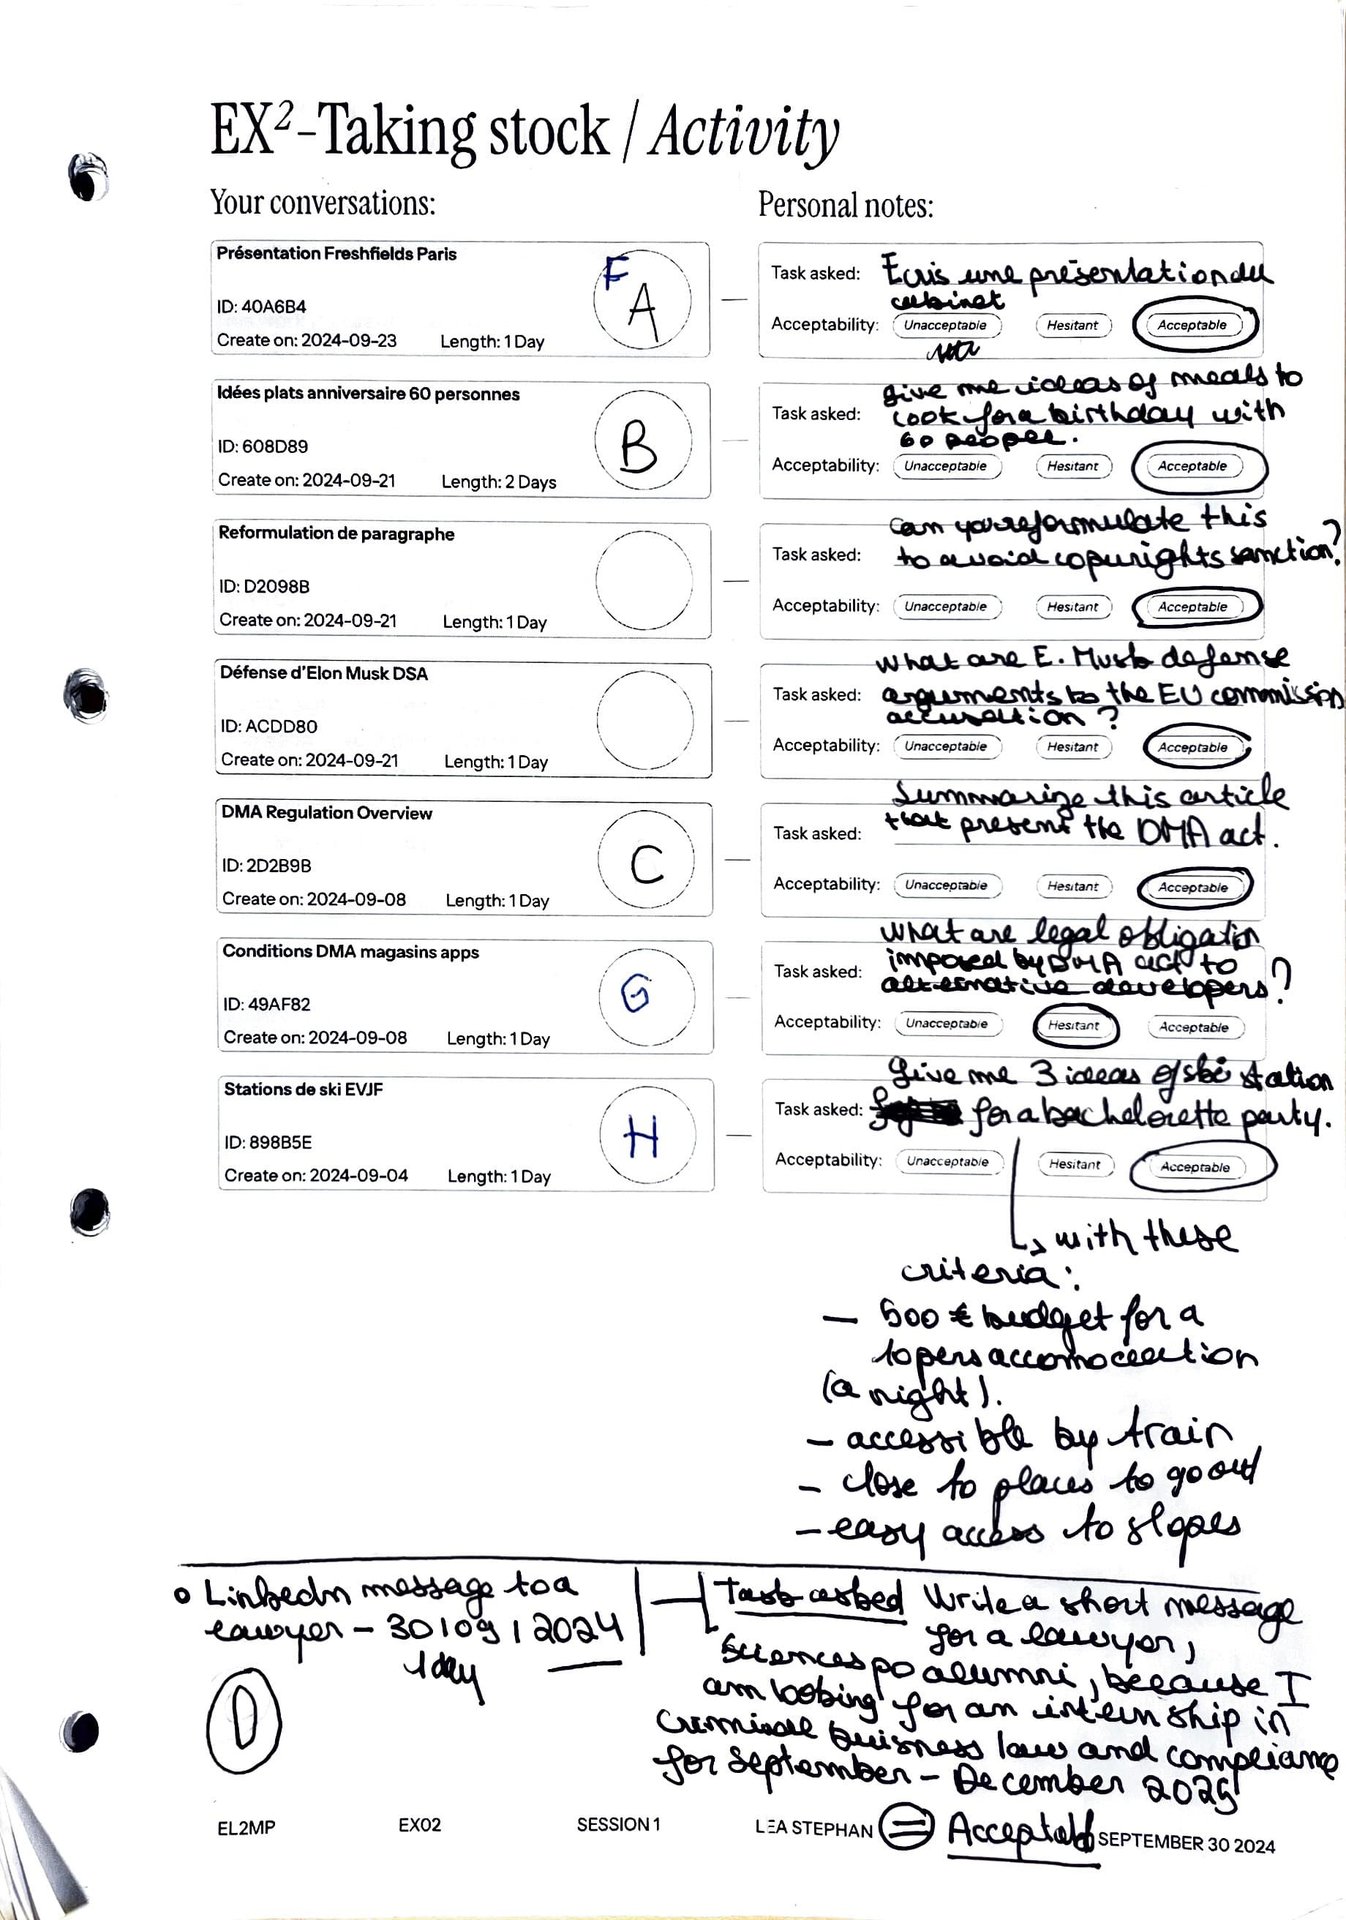 EX²-Taking stock / Activity
Your conversations:
Personal notes:
Présentation Freshfields Paris
ID: 40A6B4
Create on: 2024-09-23 Length: 1 Day
F
A
Task asked: Ecris une présentation du
cabinet
Acceptability: Unacceptable Hesitant Acceptable
Idées plats anniversaire 60 personnes
ID: 608D89
Create on: 2024-09-21 Length: 2 Days
B
give me ideas of meals to
Task asked: cook for a birthday with
60 people.
Acceptability: Unacceptable Hesitant Acceptable
Reformulation de paragraphe
ID: D2098B
Create on: 2024-09-21 Length: 1 Day
Can you reformulate this
Task asked: to avoid copurights sanction?
Acceptability: Unacceptable Hesitant Acceptable
Défense d'Elon Musk DSA
ID: ACDD80
Create on: 2024-09-21 Length: 1 Day
What are E. Musk defense
Task asked: arguments to the EU commission
accusation ?
Acceptability: Unacceptable Hesitant Acceptable
DMA Regulation Overview
ID: 2D2B9B
Create on: 2024-09-08 Length: 1 Day
C
Summarize this article
Task asked: that present the DMA act.
Acceptability: Unacceptable Hesitant Acceptable
Conditions DMA magasins apps
ID: 49AF82
Create on: 2024-09-08 Length: 1 Day
G
What are legal obligation
Task asked: imposed by DMA act to
alternative developers?
Acceptability: Unacceptable Hesitant Acceptable
Stations de ski EVJF
ID: 898B5E
Create on: 2024-09-04 Length: 1 Day
H
Give me 3 ideas of ski station
Task asked: for a bachelorette party.
Acceptability: Unacceptable Hesitant Acceptable
with these
criteria:
- 500 € budget for a
10 pers accomodation
(a night).
- accessible by train
- close to places to go out
- easy access to slopes
Linkedn message to a
lawyer - 30/09/2024
1 day
D
Task asked Write a short message
for a lawyer,
Sciences po alumni, because I
am looking for an internship in
Criminal buisness law and compliance
for September - December 2025
= Acceptable
EL2MP EX02 SESSION 1 LEA STEPHAN SEPTEMBER 30 2024